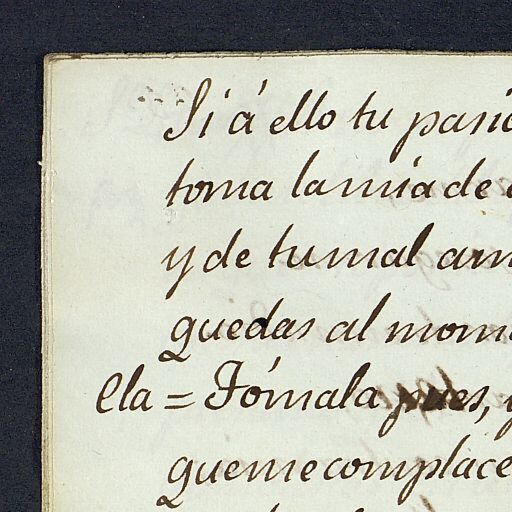 Si á ello tu pasió
toma la mia de
y de tu mal am
quedas al mom
Cla = Tómala pues,
que me complace